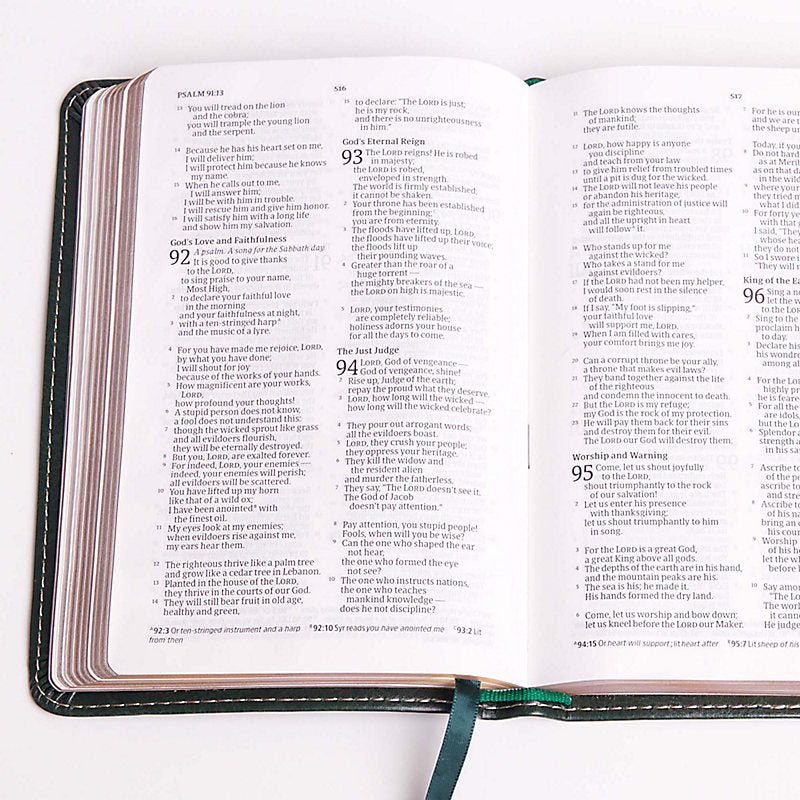 PSALM 91:13
516
13 You will tread on the lion
and the cobra;
you will trample the young lion
and the serpent.
14 Because he has his heart set on me,
I will deliver him;
I will protect him because he knows
my name.
15 When he calls out to me,
I will answer him;
I will be with him in trouble.
I will rescue him and give him honor.
16 I will satisfy him with a long life
and show him my salvation.
God's Love and Faithfulness
92 A psalm. A song for the Sabbath day.
It is good to give thanks
to the LORD,
to sing praise to your name,
Most High,
2 to declare your faithful love
in the morning
and your faithfulness at night,
3 with a ten-stringed harpᴬ
and the music of a lyre.
4 For you have made me rejoice, LORD,
by what you have done;
I will shout for joy
because of the works of your hands.
5 How magnificent are your works,
LORD,
how profound your thoughts!
6 A stupid person does not know,
a fool does not understand this:
7 though the wicked sprout like grass
and all evildoers flourish,
they will be eternally destroyed.
8 But you, LORD, are exalted forever.
9 For indeed, LORD, your enemies —
indeed, your enemies will perish;
all evildoers will be scattered.
10 You have lifted up my horn
like that of a wild ox;
I have been anointedᴮ with
the finest oil.
11 My eyes look at my enemies;
when evildoers rise against me,
my ears hear them.
12 The righteous thrive like a palm tree
and grow like a cedar tree in Lebanon.
13 Planted in the house of the LORD,
they thrive in the courts of our God.
14 They will still bear fruit in old age,
healthy and green,
15 to declare: "The LORD is just;
he is my rock,
and there is no unrighteousness
in him."
God's Eternal Reign
93 The LORD reigns! He is robed
in majesty;
the LORD is robed,
enveloped in strength.
The world is firmly established;
it cannot be shaken.
2 Your throne has been established
from the beginning;ᶜ
you are from eternity.
3 The floods have lifted up, LORD,
the floods have lifted up their voice;
the floods lift up
their pounding waves.
4 Greater than the roar of a
huge torrent —
the mighty breakers of the sea —
the LORD on high is majestic.
5 LORD, your testimonies
are completely reliable;
holiness adorns your house
for all the days to come.
The Just Judge
94 LORD, God of vengeance —
God of vengeance, shine!
2 Rise up, Judge of the earth;
repay the proud what they deserve.
3 LORD, how long will the wicked —
how long will the wicked celebrate?
4 They pour out arrogant words;
all the evildoers boast.
5 LORD, they crush your people;
they oppress your heritage.
6 They kill the widow and
the resident alien
and murder the fatherless.
7 They say, "The LORD doesn't see it.
The God of Jacob
doesn't pay attention."
8 Pay attention, you stupid people!
Fools, when will you be wise?
9 Can the one who shaped the ear
not hear,
the one who formed the eye
not see?
10 The one who instructs nations,
the one who teaches
mankind knowledge —
does he not discipline?
ᴬ92:3 Or ten-stringed instrument and a harp ᴮ92:10 Syr reads you have anointed me ᶜ93:2 Lit
from then
517
11 The LORD knows the thoughts
of mankind;
they are futile.
12 LORD, how happy is anyone
you discipline
and teach from your law
13 to give him relief from troubled times
until a pit is dug for the wicked.
14 The LORD will not leave his people
or abandon his heritage,
15 for the administration of justice will
again be righteous,
and all the upright in heart
will followᴬ it.
16 Who stands up for me
against the wicked?
Who takes a stand for me
against evildoers?
17 If the LORD had not been my helper,
I would soon rest in the silence
of death.
18 If I say, "My foot is slipping,"
your faithful love
will support me, LORD.
19 When I am filled with cares,
your comfort brings me joy.
20 Can a corrupt throne be your ally,
a throne that makes evil laws?
21 They band together against the life
of the righteous
and condemn the innocent to death.
22 But the LORD is my refuge;
my God is the rock of my protection.
23 He will pay them back for their sins
and destroy them for their evil.
The LORD our God will destroy them.
Worship and Warning
95 Come, let us shout joyfully
to the LORD,
shout triumphantly to the rock
of our salvation!
2 Let us enter his presence
with thanksgiving;
let us shout triumphantly to him
in song.
3 For the LORD is a great God,
a great King above all gods.
4 The depths of the earth are in his hand,
and the mountain peaks are his.
5 The sea is his; he made it.
His hands formed the dry land.
6 Come, let us worship and bow down;
let us kneel before the LORD our Maker.
7 For he is our
and we are t
the sheep u
Today, if you
8 Do not hard
as at Merib
as on that da
in the wild
9 where your
they tried m
what I did
10 For forty ye
with that g
I said, "They
whose hea
they do not
11 So I swore i
"They will r
King of the Ea
96 Sing a n
let the w
to the LO
2 Sing to the
proclaim h
to day.
3 Declare his
his wondro
among al
4 For the LOR
highly pr
he is feare
5 For all the
are idols,
but the L
6 Splendor a
strength a
in his san
7 Ascribe to
of the pe
ascribe to
and stre
8 Ascribe to
of his na
bring an
his cour
9 Worship
of his h
let the w
before
10 Say amon
"The LO
The worl
it canno
He judge
ᴬ94:15 Or heart will support; lit heart after ᴮ95:7 Lit sheep of his